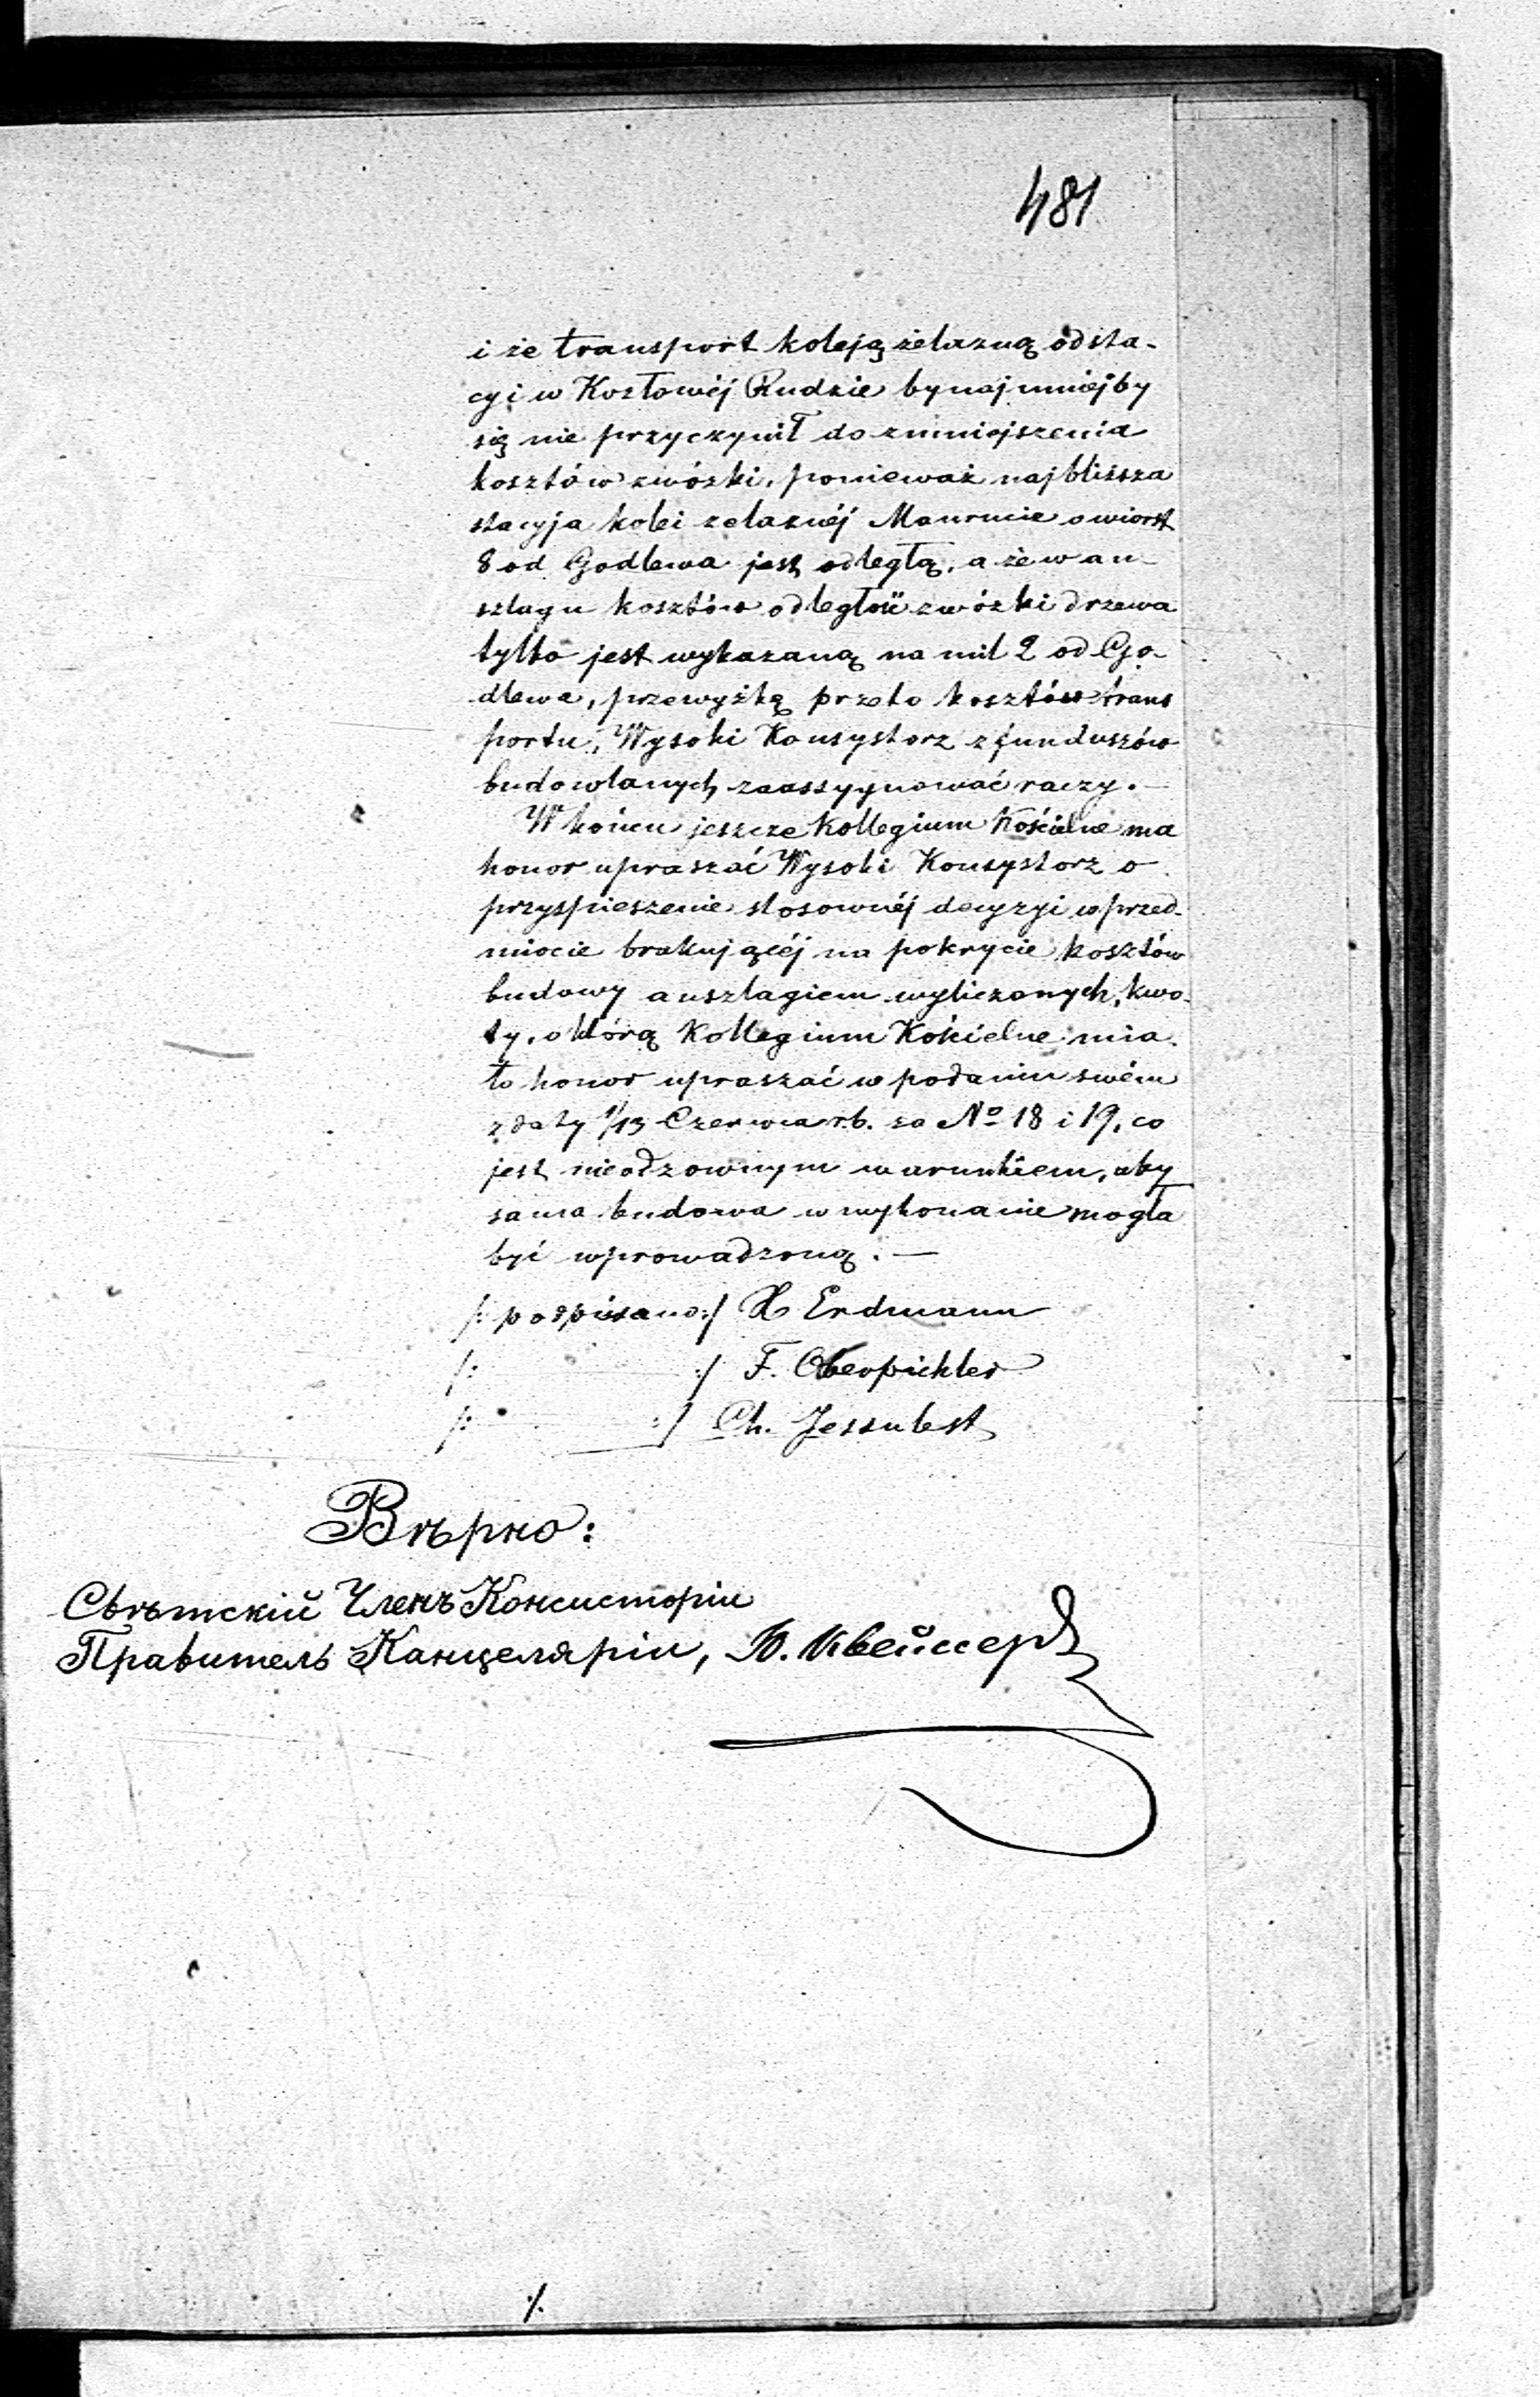 481
i że transport koleją żelazną od sta-
cyi w Kozłowéj Rudzie bynajmniejby
się nie przyczynił do zmniejszenia
kosztów zwózki, ponieważ najbliższa
stacyja kolei żelaznéj Maurucie o wiorst
8 od Godlewa jest odległą, a że w an-
szlagu kosztów odległość zwózki drzewa
tylko jest wykazaną na mil 2 od Go-
dlewa, przewyżkę przeto kosztów trans
portu, Wysoki Konsystorz z funduszów
budowlanych zaassygnować raczy. —
W końcu jeszcze Kollegium Kościelne ma
honor upraszać Wysoki Konsystorz o
przyspieszenie stosownéj decyzyi w przed-
miocie brakującéj na pokrycie kosztów
budowy anszlagiem wyliczonych, kwo-
ty, o którą Kollegium Kościelne mia-
ło honor upraszać w podaniu swém
z daty 1/13 Czerwca r.b. za No 18 i 19, co
jest nieodzownym warunkiem, aby
sama budowa w wykonanie mogła
być wprowadzoną. —
/: podpisano :/ X Erdmann
/: :/ F. Oberpichler
/: :/ Ch. Jessulest
Вѣрно:
Свѣтскій Членъ Консисторіи
Правитель Канцеляріи,
./.